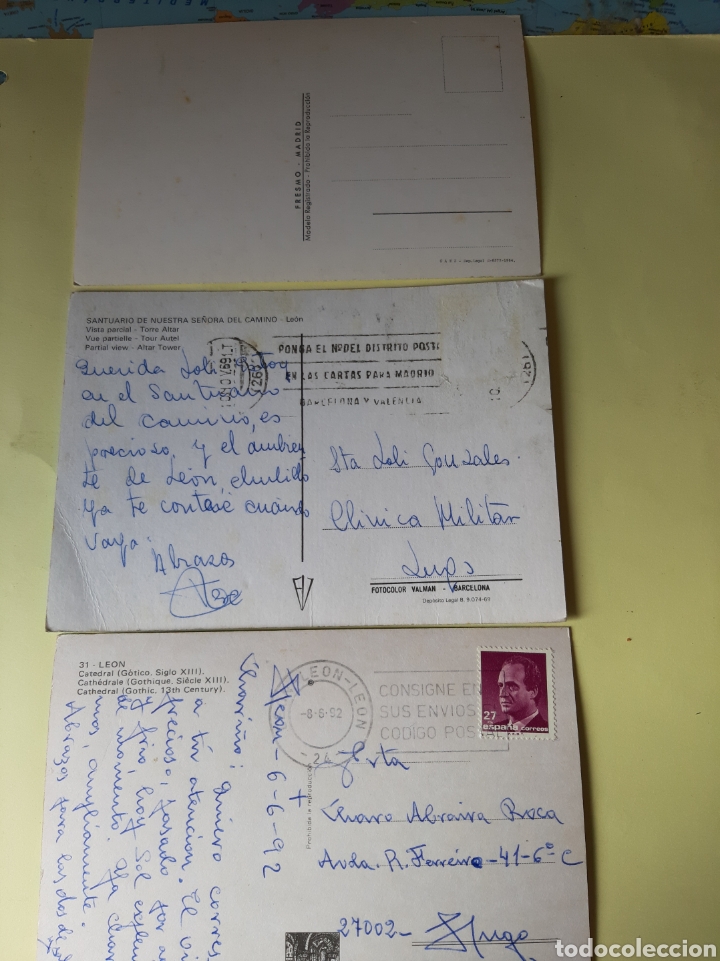 FRESMO - MADRID
Modelo Registrado - Prohibida la Reproducción
SANTUARIO DE NUESTRA SEÑORA DEL CAMINO - León
Vista parcial - Torre Altar
Vue partielle - Tour Autel
Partial view - Altar Tower
PONGA EL Nº DEL DISTRITO POSTA
EN LAS CARTAS PARA MADRID
BARCELONA Y VALENCIA
Querida Loli
en el Santuario
del camino, es
precioso y el ambien
te de León,
ya te contaré cuando
vaya.
Abrazos
Sta Loli Gonzales
Clinica Militar
Lugo
FOTOCOLOR VALMAN - BARCELONA
Depósito Legal B. 9.074-69
31 - LEON
Catedral (Gótico, Siglo XIII).
Cathédrale (Gothique, Siècle XIII).
Cathedral (Gothic, 13th Century).
LEON-LEON
-8-6-92
CONSIGNE EN
SUS ENVIOS
CODIGO POSTAL
27
españa correos
León-6-6-92
Quiero corres
a tu atención. El
precioso, pasado por
y frio, hoy Sol
de momento! Ya
mos, ampliamente.
Abrazos para las dos de
Prohibida la reproducción
Srta
Charo Abraira Roca
Avda. R. Ferreiro-41-6º C
27002- Lugo
todocoleccion